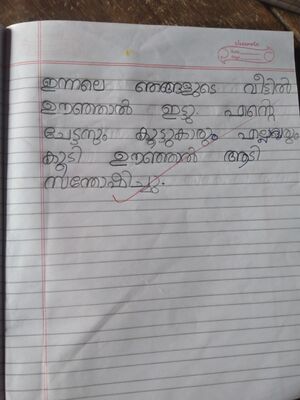 classmate
Date
Page
ഇന്നലെ ഞങ്ങളുടെ വീട്ടിൽ
ഊഞ്ഞാൽ ഇട്ടു. എന്റെ
ചേട്ടനും കൂട്ടുകാരും എല്ലാവരും
കൂടി ഊഞ്ഞാൽ ആടി
സന്തോഷിച്ചു.